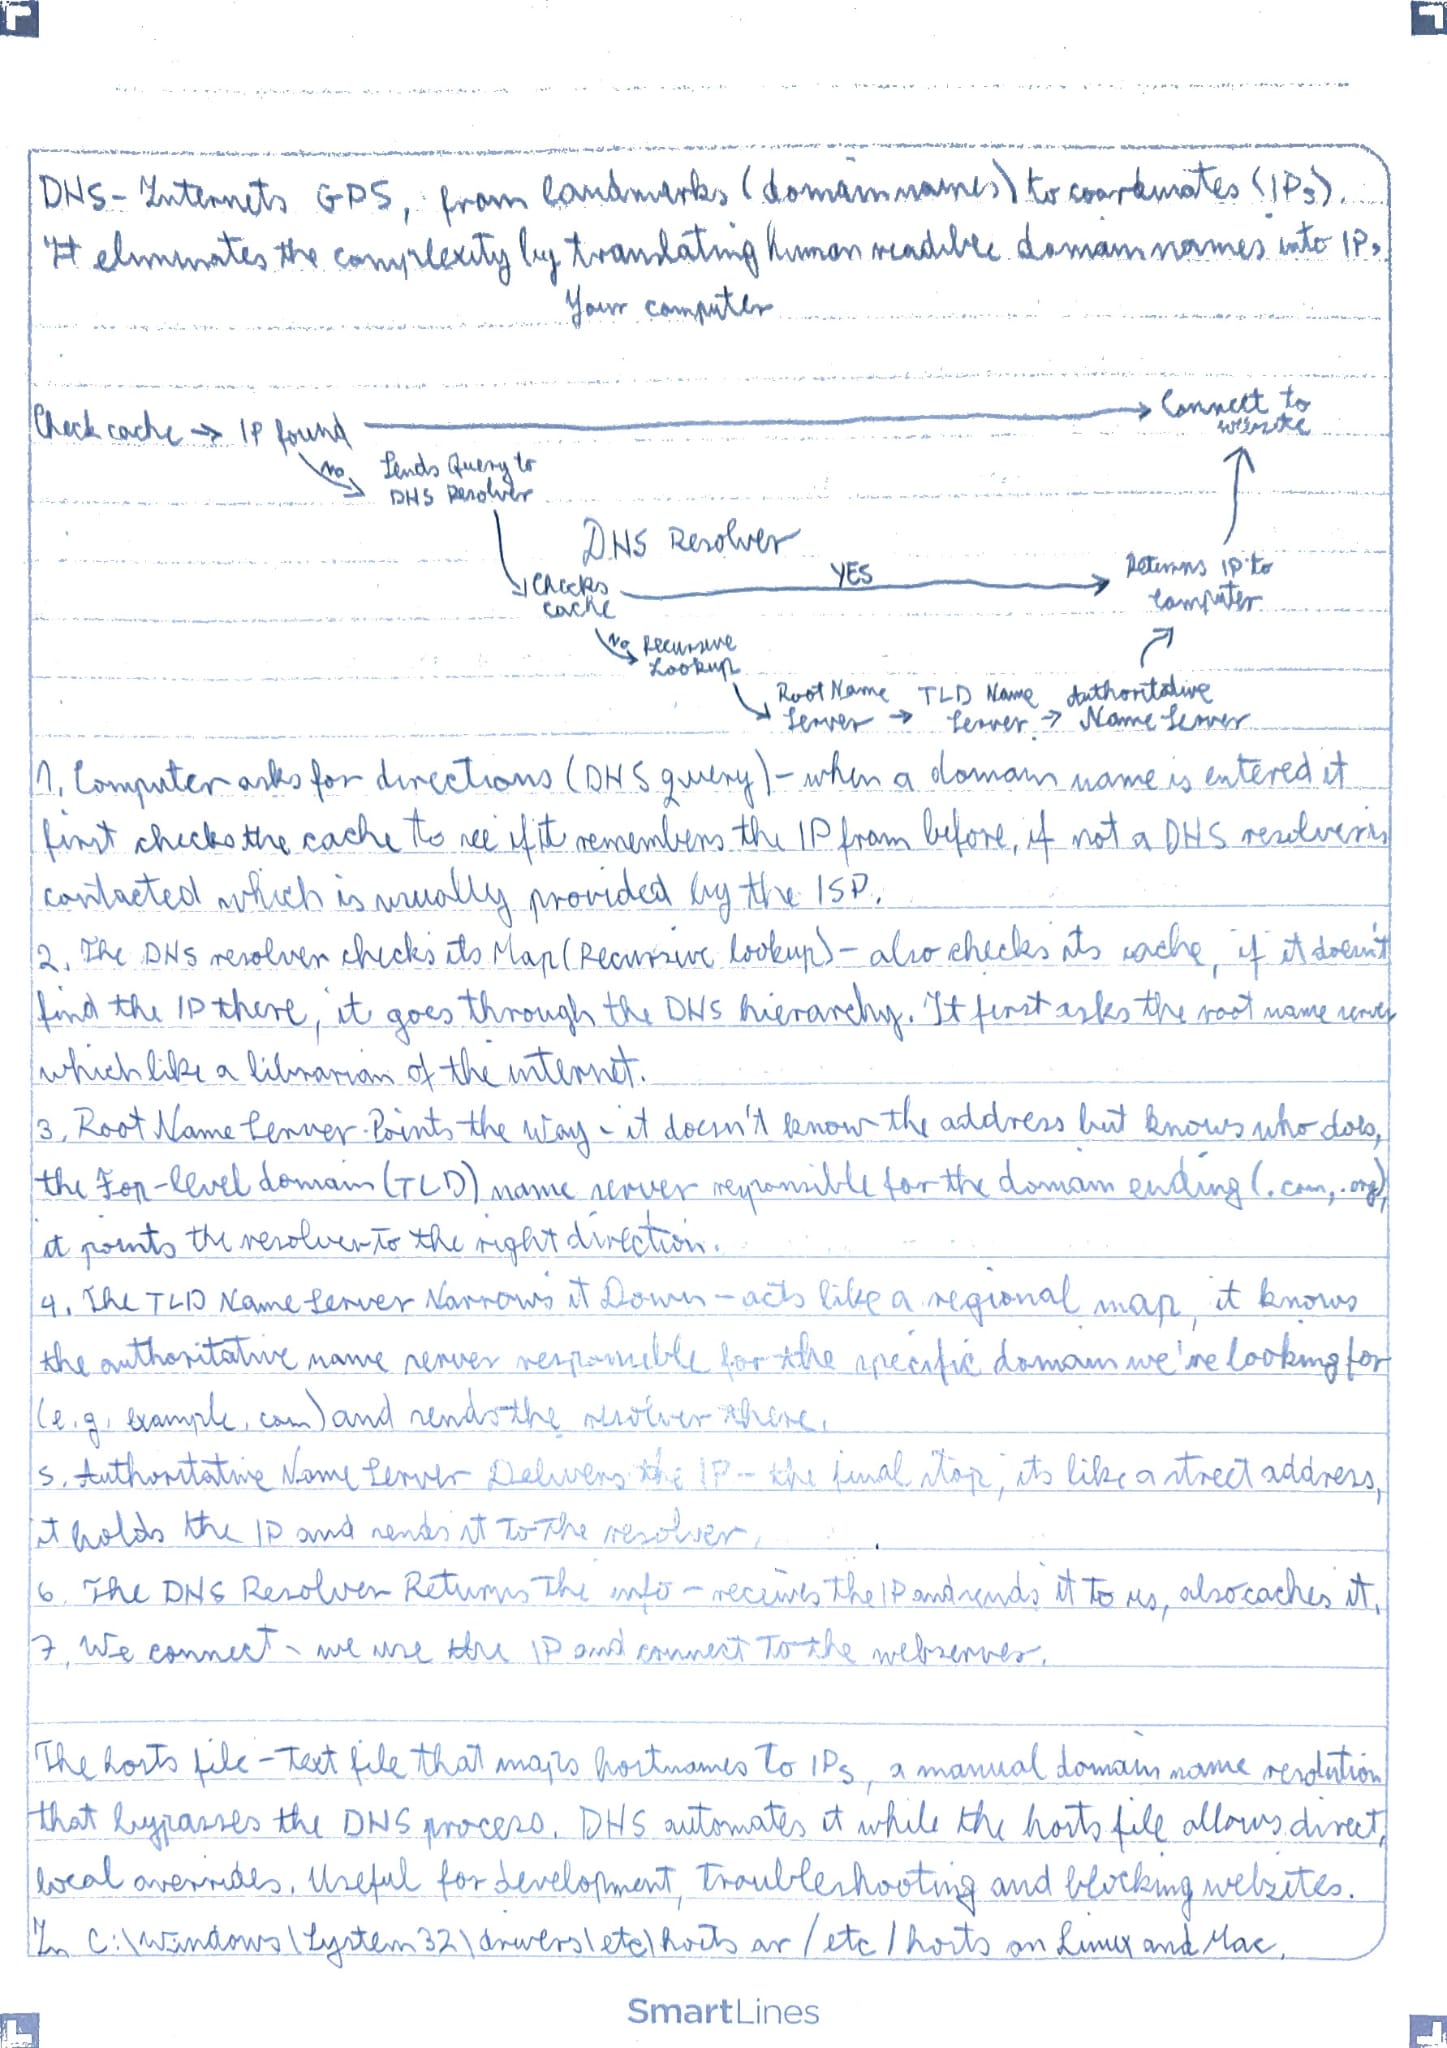 DNS - Internets GPS, from landmarks (domain names) to coordinates (IPs).
It eliminates the complexity by translating human readible domain names into IPs
Your computer
Check cache → IP found → Connect to website
no
Sends Query to
DNS Resolver
DNS Resolver
Checks cache
YES
Returns IP to computer
No
Recursive Lookup
Root Name Server → TLD Name Server → Authoritative Name Server
1. Computer asks for directions (DNS query) - when a domain name is entered it
first checks the cache to see if it remembers the IP from before, if not a DNS resolver is
contacted which is usually provided by the ISP.
2. The DNS resolver checks its Map (Recursive lookup) - also checks its cache, if it doesn't
find the IP there, it goes through the DNS hierarchy. It first asks the root name server
which like a librarian of the internet.
3. Root Name Server Points the Way - it doesn't know the address but knows who does,
the Top-level domain (TLD) name server responsible for the domain ending (.com, .org),
it points the resolver to the right direction.
4. The TLD Name Server Narrows it Down - acts like a regional map, it knows
the authoritative name server responsible for the specific domain we're looking for
(e.g. example.com) and sends the resolver there.
5. Authoritative Name Server Delivers the IP - the final stop, its like a street address,
it holds the IP and sends it to the resolver.
6. The DNS Resolver Returns the info - receives the IP and sends it to us, also caches it.
7. We connect - we use the IP and connect to the webserver.
The hosts file - text file that maps hostnames to IPs, a manual domain name resolution
that bypasses the DNS process. DNS automates it while the hosts file allows direct,
local overrides. Useful for development, troubleshooting and blocking websites.
In C:\Windows\System32\drivers\etc\hosts or /etc/hosts on Linux and Mac.
SmartLines